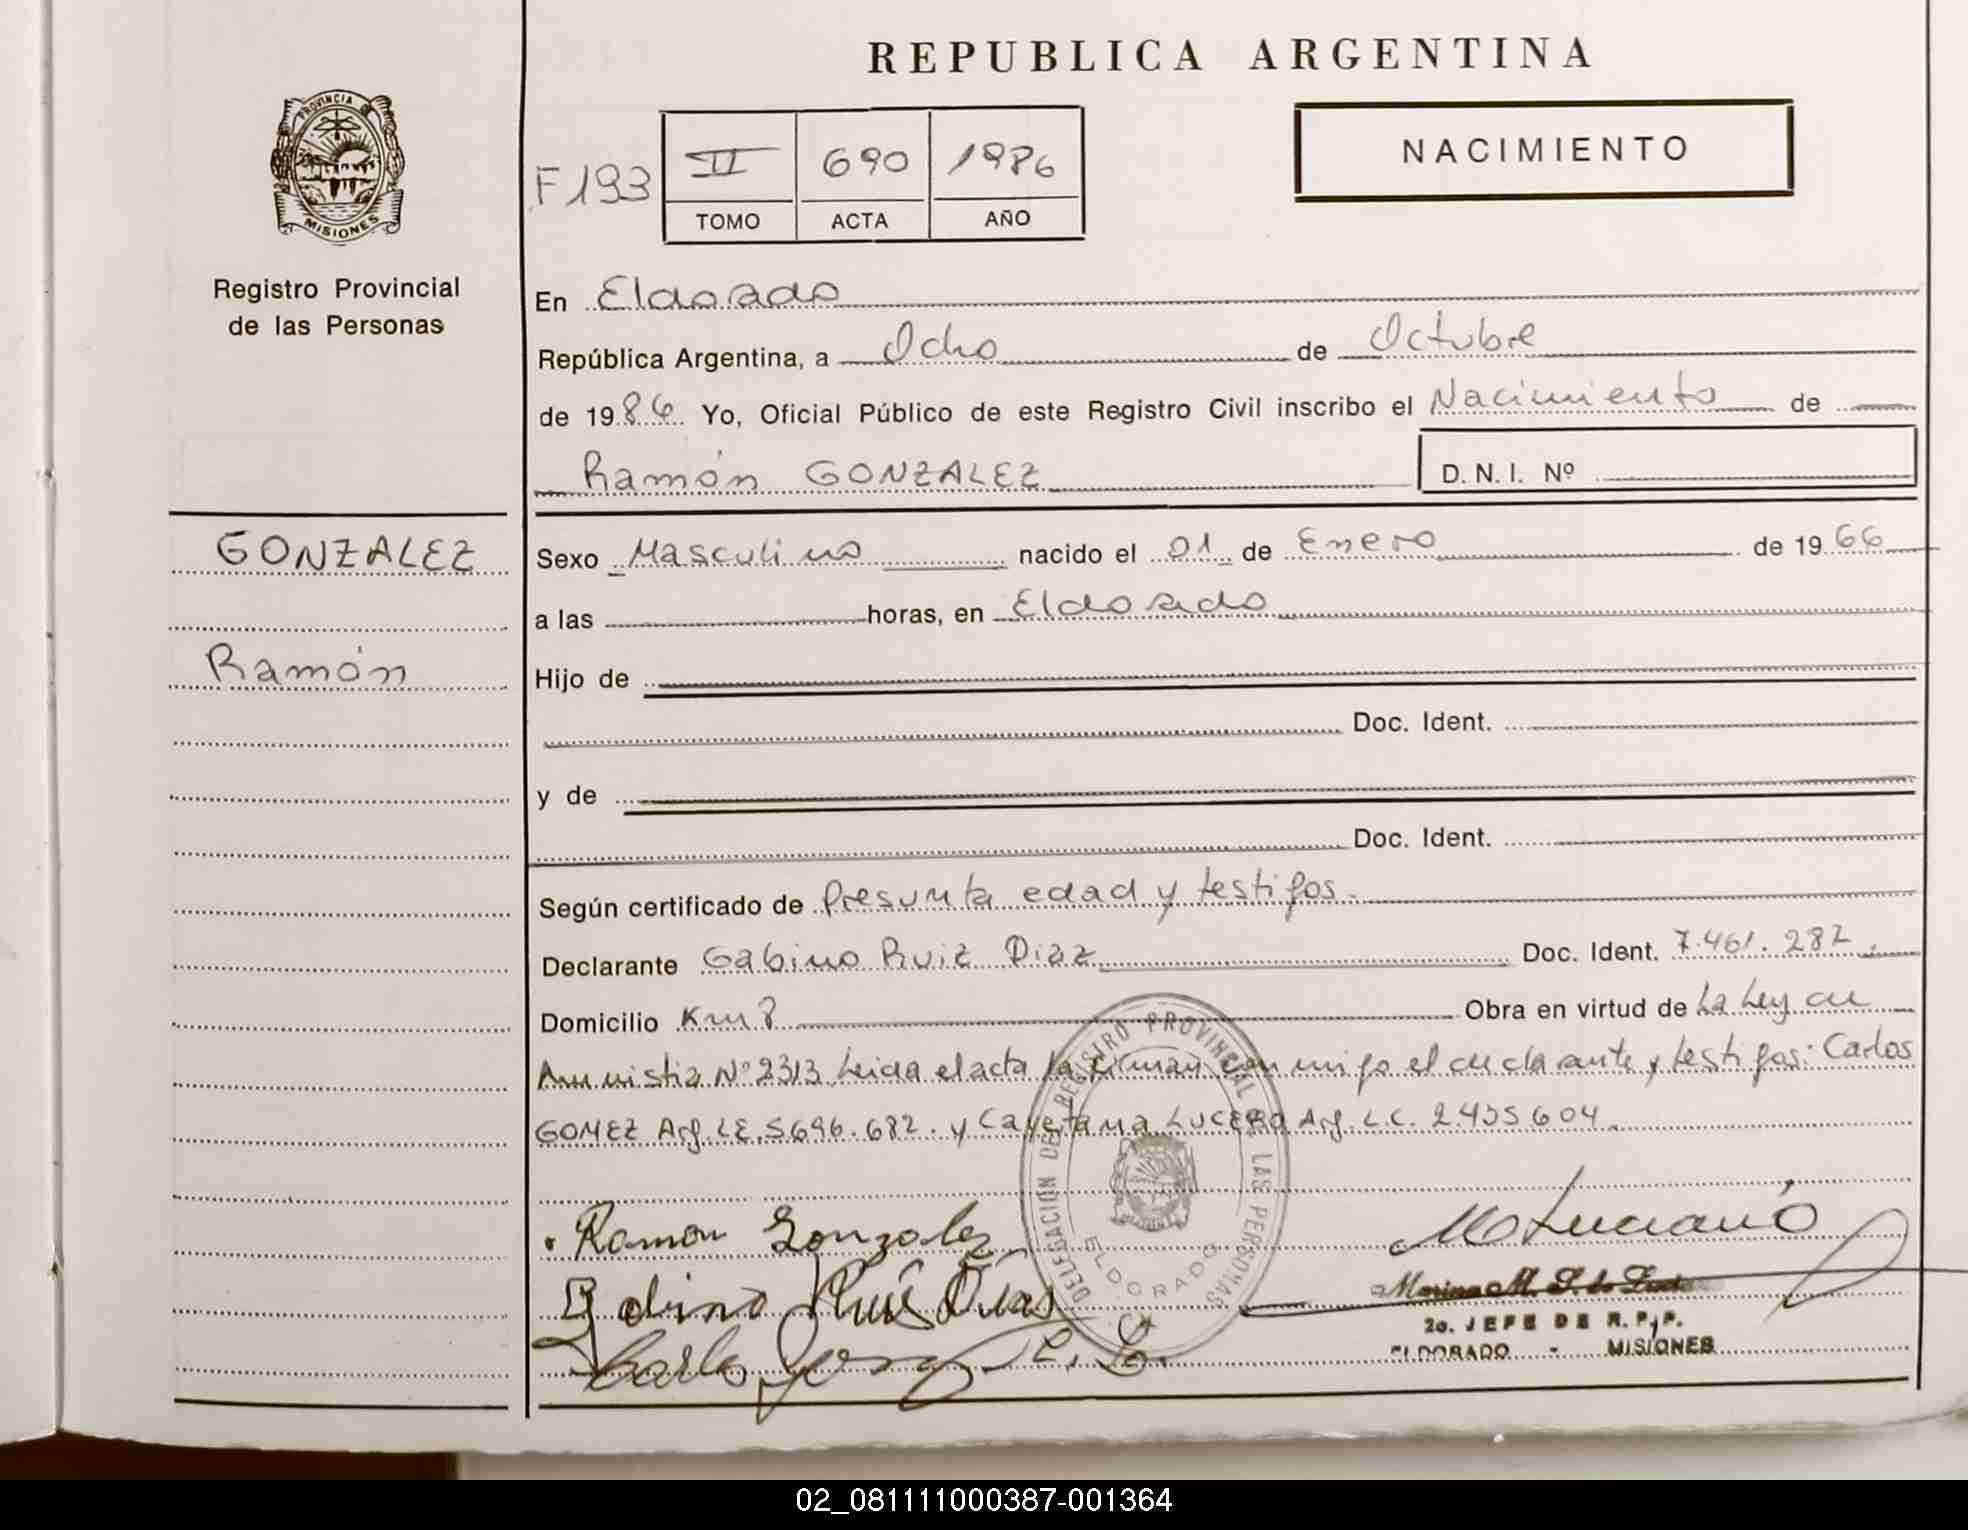 REPUBLICA ARGENTINA
PROVINCIA DE
MISIONES
Registro Provincial
de las Personas
F 193
II 690 1986
TOMO ACTA AÑO
NACIMIENTO
En Eldorado
República Argentina, a Ocho de Octubre
de 1986 Yo, Oficial Público de este Registro Civil inscribo el Nacimiento de
Ramón GONZALEZ D. N. I. Nº
GONZALEZ
Ramón
Sexo Masculino nacido el 01 de Enero de 1966
a las horas, en Eldorado
Hijo de
Doc. Ident.
y de
Doc. Ident.
Según certificado de Presunta edad y testigos.
Declarante Gabino Ruiz Diaz Doc. Ident. 7.461.287.
Domicilio Km 8 Obra en virtud de La Ley de
Amnistia Nº 2313 Leida el acta la firman conmigo el declarante y testigos: Carlos
GOMEZ Arg. L.E. 5696.682. y Cayetana LUCERO Arg. L.C. 2.435604.
DELEGACIÓN DEL REGISTRO PROVINCIAL DE LAS PERSONAS
ELDORADO
Ramon Gonzalez
Gabino Ruiz Dias
Carlos C. L.
2o. JEFE DE R. P. P.
ELDORADO - MISIONES
02_081111000387-001364